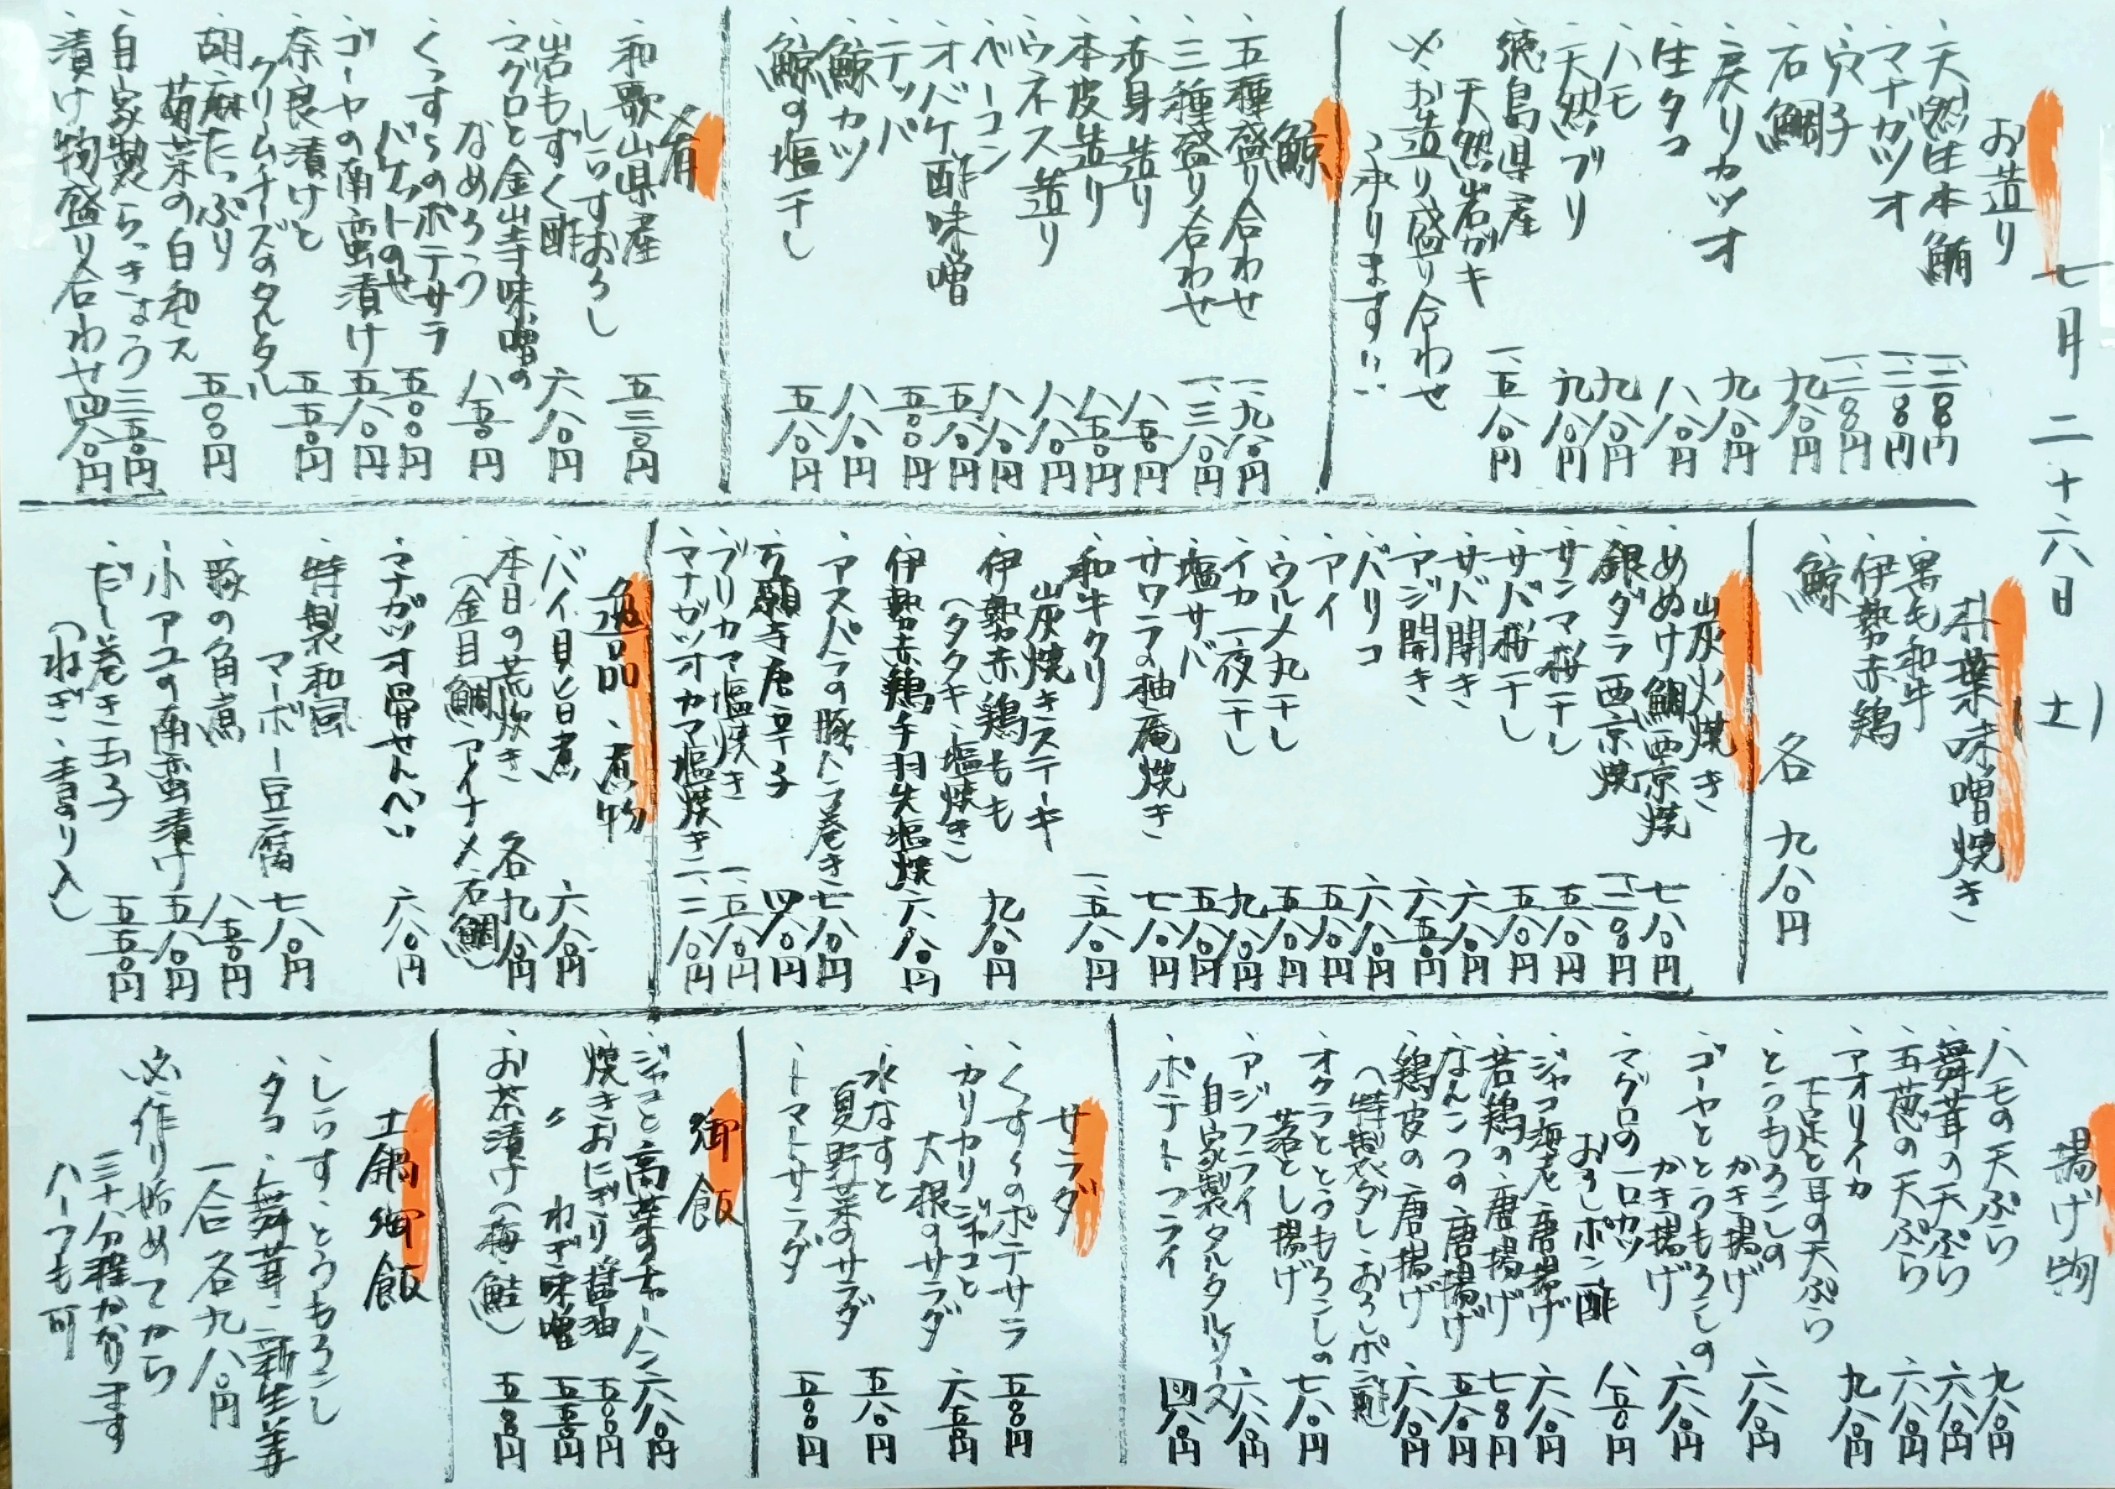 七月二十六日(土)
お造り
、天然生本鮪 一、二八〇円
、マナガツオ 一、二八〇円
、穴子 一、二八〇円
、石鯛 九八〇円
、戻りカツオ 九八〇円
、生タコ 八八〇円
、ハモ 九八〇円
、天然ブリ 九八〇円
、徳島県産
天然岩ガキ 一、五八〇円
※お造り盛り合わせ
承ります!!
鯨
、五種盛り合わせ 一、九八〇円
、三種盛り合わせ 一、三八〇円
、赤身造り 八五〇円
、本皮造り 八五〇円
、ウネス造り 八八〇円
、ベーコン 八八〇円
、オバケ酢味噌 五八〇円
、テッパ 五〇〇円
、鯨カツ 八八〇円
、鯨の塩干し 五八〇円
肴
、和歌山県産
しらすおろし 五三〇円
、岩もずく酢 六八〇円
、マグロと金山寺味噌の
なめろう 八五〇円
、くすくすのポテサラ
バケットのせ 五〇〇円
、ゴーヤの南蛮漬け 五八〇円
、奈良漬けと
クリームチーズのタルタル 五五〇円
、胡麻たっぷり
菊菜の白和え 五〇〇円
、自家製らっきょう 三五〇円
、漬け物盛り合わせ 四八〇円
朴葉味噌焼き
、黒毛和牛
、伊勢赤鶏
、鯨
各 九八〇円
炭火焼き
、めぬけ鯛西京焼 七八〇円
、銀ダラ西京焼 一、二八〇円
、サンマ桜干し 五八〇円
、サバ桜干し 五八〇円
、サバ開き 六八〇円
、アジ開き 六五〇円
、バリコ 六八〇円
、アイ 五八〇円
、ウルメ丸干し 五八〇円
、イカ一夜干し 九八〇円
、塩サバ 五八〇円
、サワラの柚庵焼き 七八〇円
、和牛クリ
炭焼きステーキ 一、五八〇円
、伊勢赤鶏もも
(タタキ、塩焼き) 九八〇円
、伊勢赤鶏手羽先塩焼 六八〇円
、アスパラの豚トロ巻き 七八〇円
、万願寺唐辛子 四八〇円
、ブリカマ塩焼き 一、五八〇円
、マナガツオカマ塩焼き 二、二八〇円
逸品、煮物
、バイ貝旨煮 六八〇円
、本日の荒炊き 各九八〇円
(金目鯛、アイナメ、石鯛)
、マナガツオ骨せんべい 六八〇円
、特製和風
マーボー豆腐 七八〇円
、豚の角煮 八五〇円
、小アユの南蛮漬け 五八〇円
、だし巻き玉子 五五〇円
(ねぎ、青のり入)
揚げ物
、ハモの天ぷら 九八〇円
、舞茸の天ぷら 六八〇円
、玉葱の天ぷら 六八〇円
、アオリイカ
下足と耳の天ぷら 九八〇円
、とうもろこしの
かき揚げ 六八〇円
、ゴーヤととうもろこしの
かき揚げ 六八〇円
、マグロの一口カツ
おろしポン酢 八五〇円
、ジャコ海老唐揚げ 六八〇円
、若鶏の唐揚げ 七八〇円
、なんこつの唐揚げ 五八〇円
、鶏皮の唐揚げ 六八〇円
(特製ダレ、おろしポン酢)
、オクラととうもろこしの
落とし揚げ 七八〇円
、アジフライ
自家製タルタルソース 六八〇円
、ポテトフライ 四八〇円
サラダ
、くすくすのポテサラ 五〇〇円
、カリカリジャコと
大根のサラダ 六五〇円
、水なすと
夏野菜のサラダ 五八〇円
、トマトサラダ 五〇〇円
御飯
、ジャコと高菜のチャーハン 六八〇円
、焼きおにぎり醤油 五〇〇円
〃 ねぎ味噌 五五〇円
、お茶漬け(梅、鮭) 五〇〇円
土鍋御飯
、しらすとうもろこし
、タコ、舞茸、新生姜
一合各九八〇円
※作り始めてから
三十分程かかります
ハーフも可